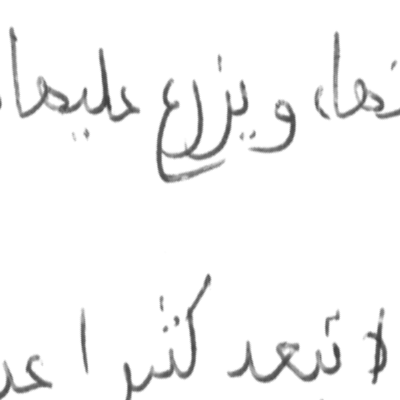 ـها، ويزرع عليها
لا تبعد كثيرا عـ